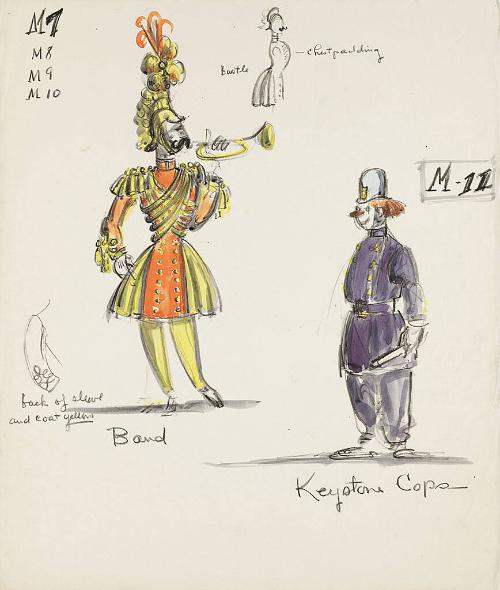 M7
M8
M9
M10
Bustle
chestpadding
M-11
back of sleeve
and coat yellow
Band
Keystone Cops